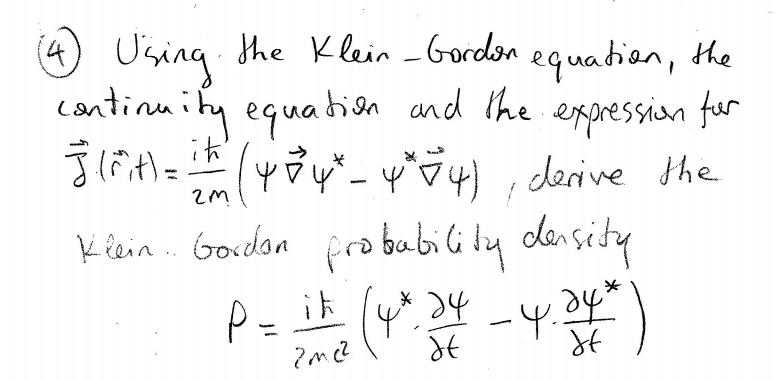 (4) Using the Klein-Gordon equation, the
continuity equation and the expression for
$\vec{J}(\vec{r},t) = \frac{i\hbar}{2m}\left(\psi\vec{\nabla}\psi^* - \psi^*\vec{\nabla}\psi\right)$, derive the
Klein-Gordon probability density
$\rho = \frac{i\hbar}{2mc^2}\left(\psi^* \cdot \frac{\partial\psi}{\partial t} - \psi \cdot \frac{\partial\psi^*}{\partial t}\right)$